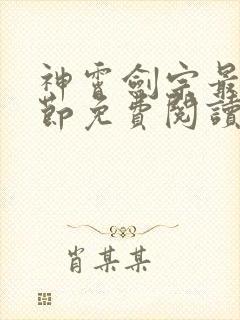 神霄劍宗最
節免費閱讀
肖某某